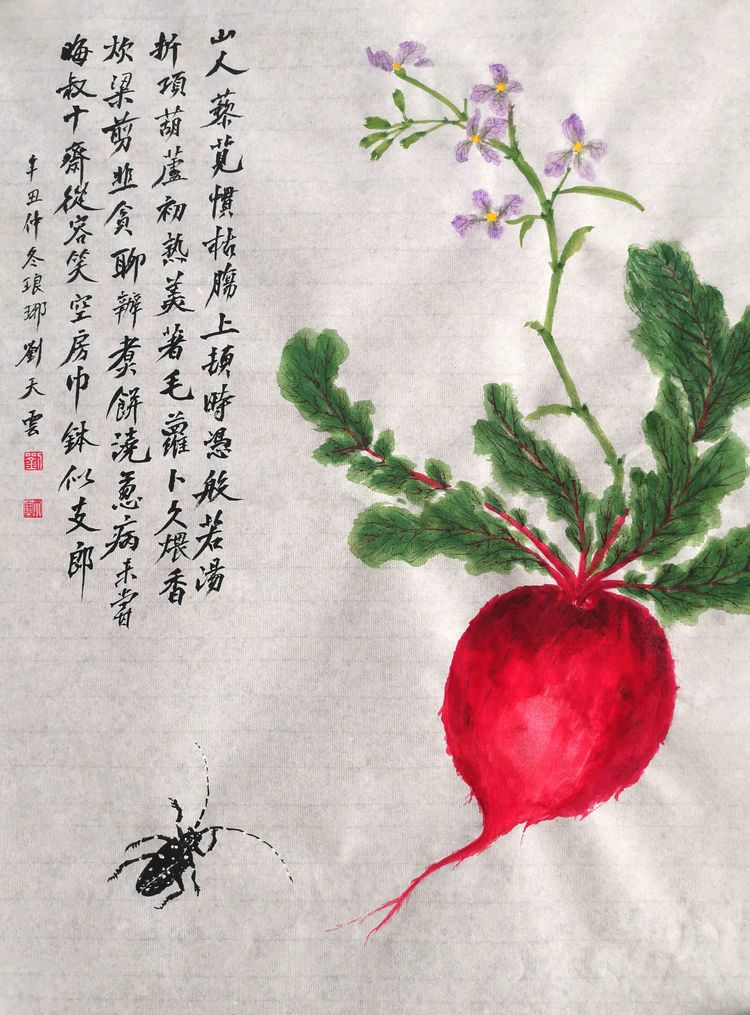 山人藜莧慣枯腸上頓時憑般若湯
折項葫蘆初熟美著毛蘿卜久煨香
炊梁剪韭貪聊辦煮餅澆葱病未嘗
晦叔十齋從容笑空房巾鉢似支郎
辛丑仲冬琅琊劉天雲
劉